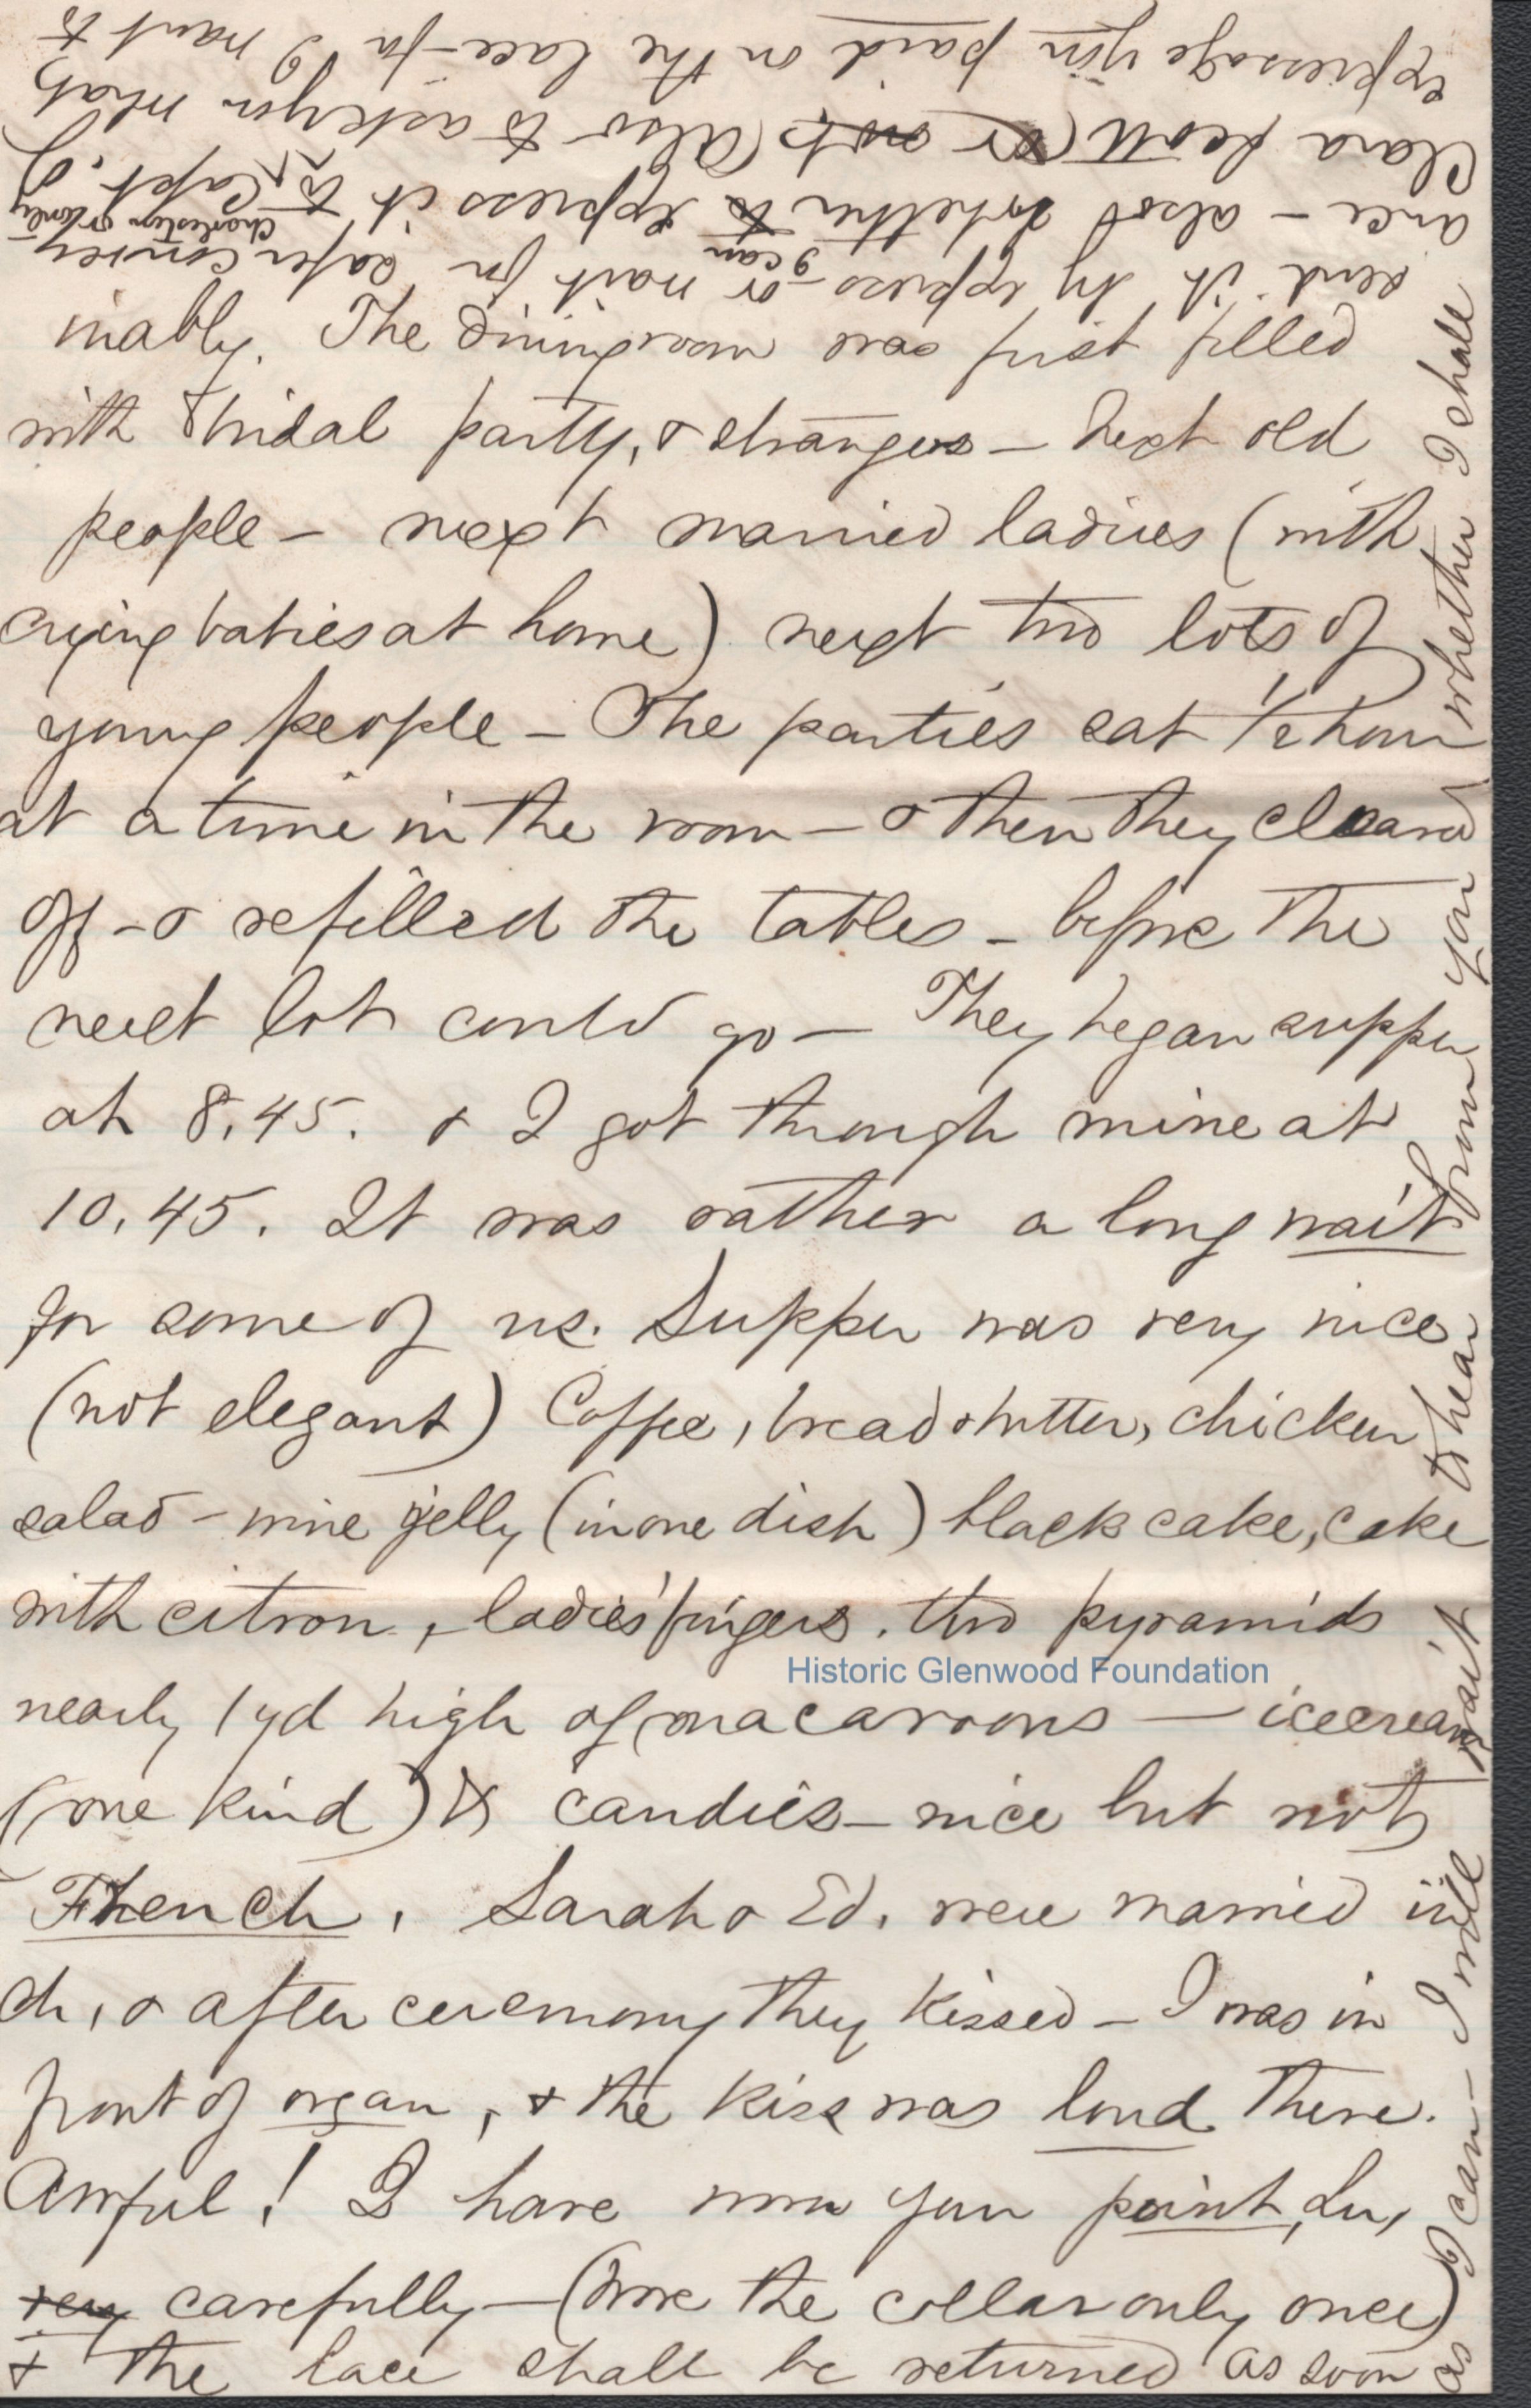 inably. The diningroom was first filled
with bridal party, & strangers – Next old
people – next married ladies (with
crying babies at home) next two lots of
young people – The parties sat 1/2 hour
at a time in the room – & then they cleared
off – & refilled the tables – before the
next lot could go – They began supper
at 8,45. & I got through mine at
10,45. It was rather a long wait
for some of us. Supper was very nice
(not elegant) Coffee, bread & butter, chicken
salad – wine jelly (in one dish) black cake, cake
with citron, ladies' fingers. two pyramids
Historic Glenwood Foundation
nearly 1 yd high of macaroons — icecream
(one kind) & candies – nice but not
French, Sarah & Ed. were married in
ch, & after ceremony they kissed – I was in
front of organ, & the kiss was loud there.
Awful! I have worn your point, Lu,
very carefully – (wore the collar only once)
& the lace shall be returned as soon
as I can – I will wait to hear from you whether I shall
send it by express – or wait for safer convey-
ance – also whether I can express it to Charleston or only to Capt. J.
Clara Scott (or not) Also to ask you what
expressage you paid on the lace – for I want to